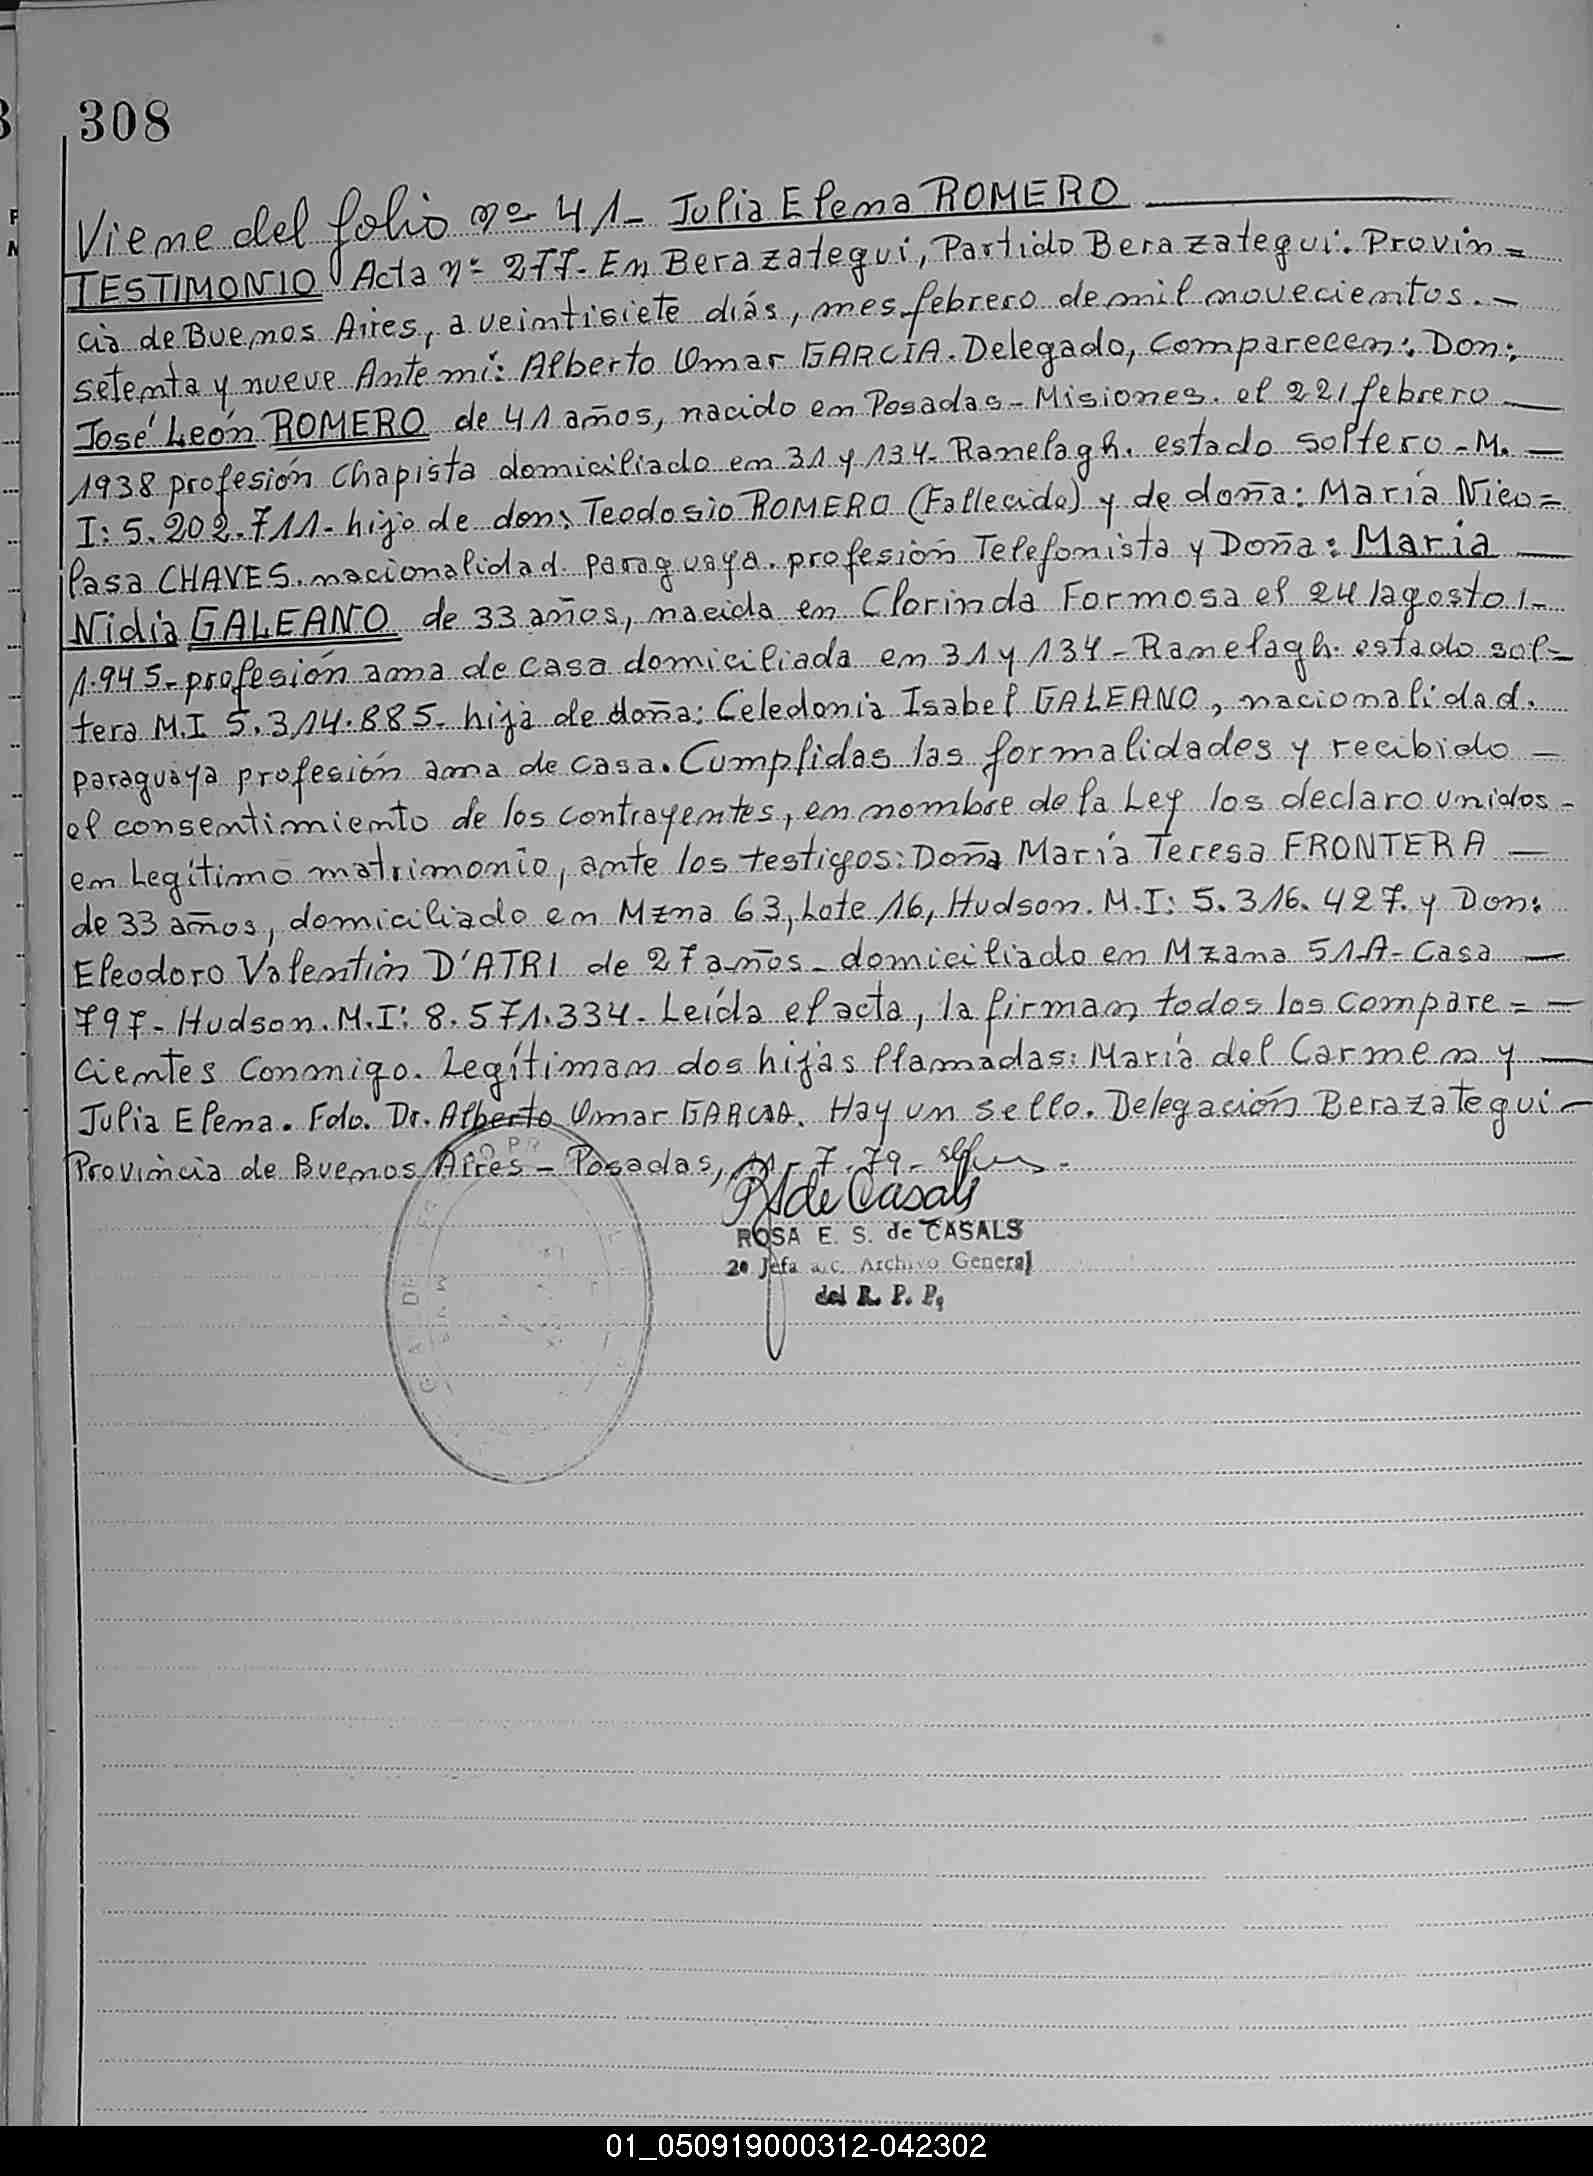 308
Viene del folio nº 41- Julia Elena ROMERO
TESTIMONIO Acta nº 277- En Berazategui, Partido Berazategui. Provin=
cia de Buenos Aires, a veintisiete días, mes febrero de mil novecientos.-
setenta y nueve Ante mí: Alberto Omar GARCIA. Delegado, Comparecen: Don:
José León ROMERO de 41 años, nacido en Posadas - Misiones. el 22/febrero
1938 profesión chapista domiciliado en 31 y 134- Ranelagh. estado soltero - M.
I: 5.202.711- hijo de don: Teodosio ROMERO (Fallecido) y de doña: María Nico=
lasa CHAVES. nacionalidad paraguaya. profesión Telefonista y Doña: María
Nidia GALEANO de 33 años, nacida en Clorinda Formosa el 24/agosto/-
1.945- profesión ama de casa domiciliada en 31 y 134 - Ranelagh. estado sol=
tera M.I 5.314.885- hija de doña: Celedonia Isabel GALEANO, nacionalidad.
paraguaya profesión ama de casa. Cumplidas las formalidades y recibido -
el consentimiento de los contrayentes, en nombre de la Ley los declaro unidos -
en Legítimo matrimonio, ante los testigos: Doña María Teresa FRONTERA -
de 33 años, domiciliado en Mzna 63, Lote 16, Hudson. M.I: 5.316.427. y Don:
Eleodoro Valentín D'ATRI de 27 años - domiciliado en Mzana 51-A- Casa -
797- Hudson. M.I: 8.571.334- Leída el acta, la firman todos los compare= -
cientes Conmigo. Legítiman dos hijas llamadas: María del Carmen y -
Julia Elena. Fdo. Dr. Alberto Omar GARCIA. Hay un sello. Delegación Berazategui -
Provincia de Buenos Aires - Posadas, 11-7-79-
de Casals
ROSA E. S. de CASALS
2º Jefa a/c. Archivo General
del R. P. P.
01_050919000312-042302